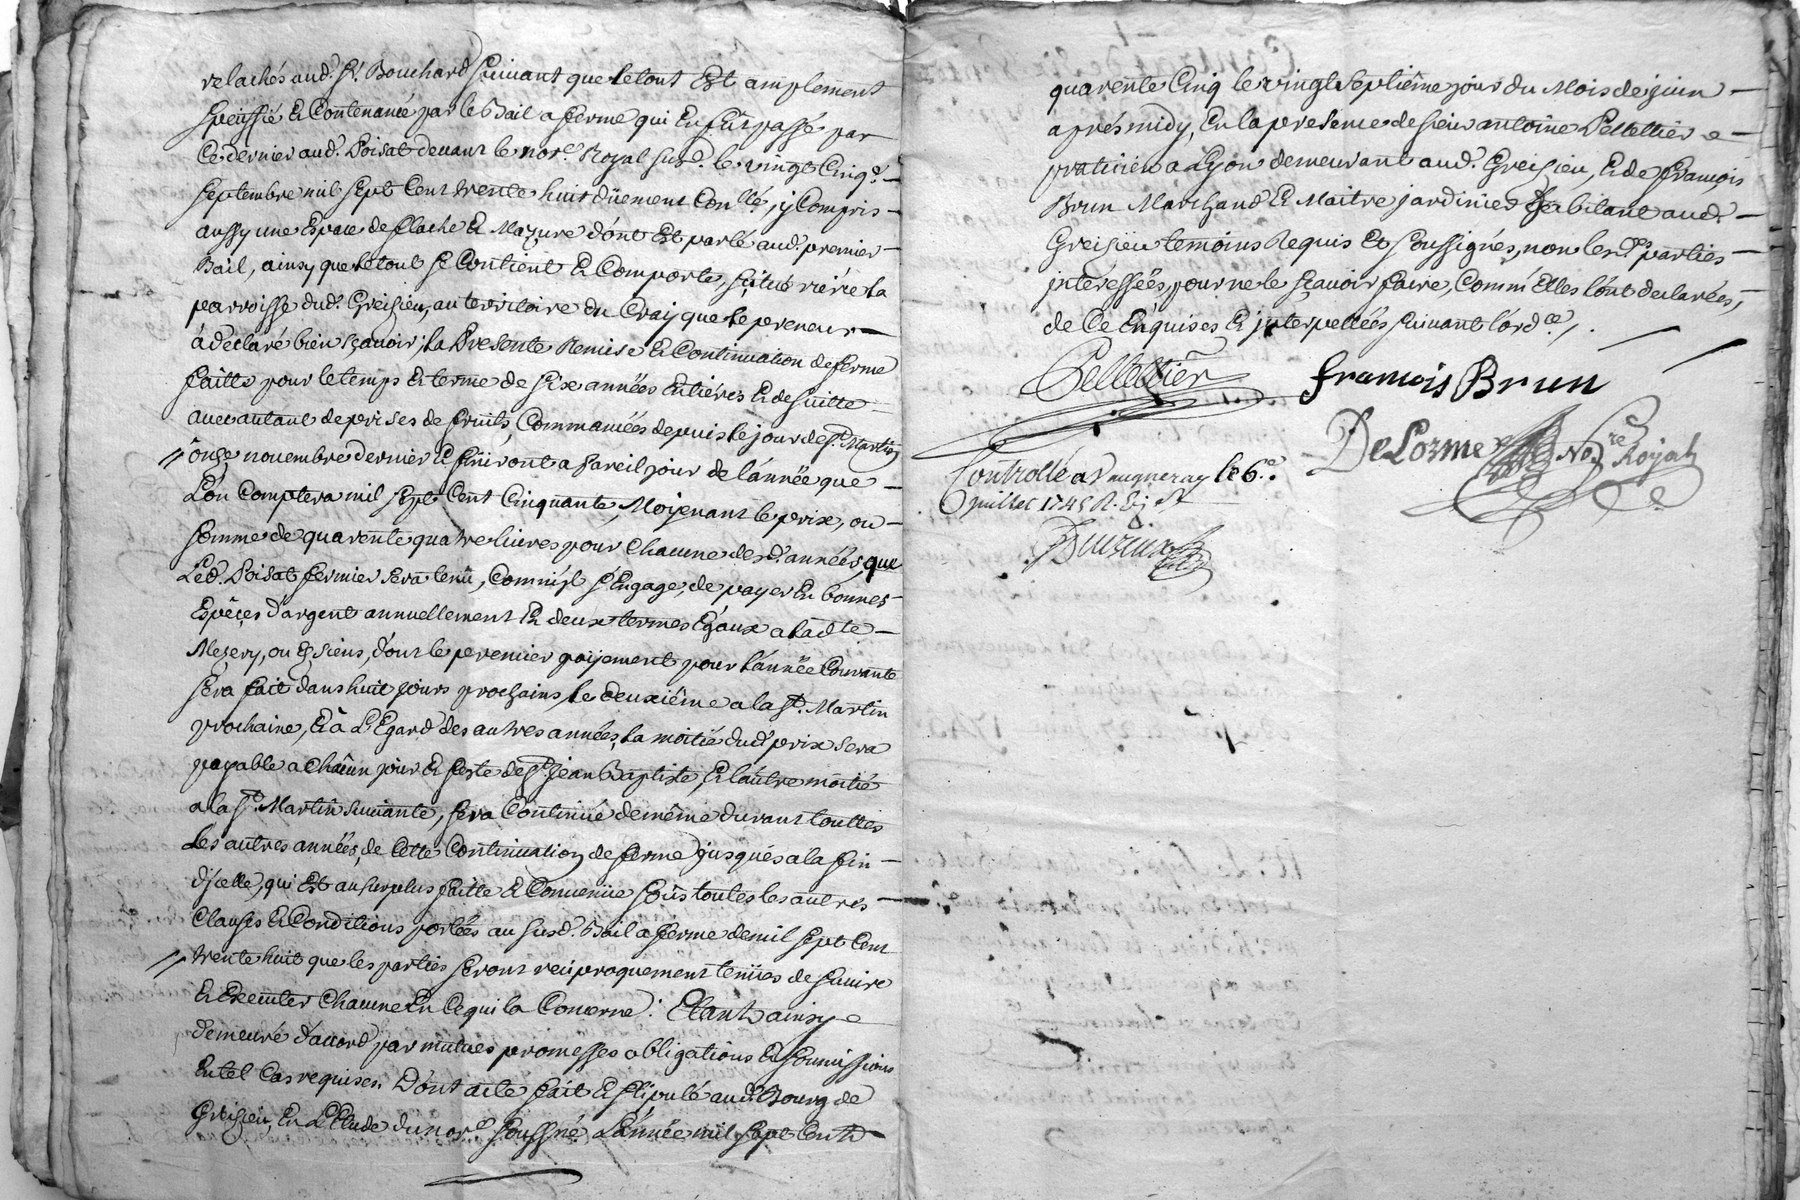 relachés aud. Sr. Bouchard suivant que le tout Est amplement
speciffié & Contenancé par le Bail a ferme qui En fût passé par
Ce dernier aud. Poisat devant le nore. Royal susd. le vingt Cinq.e
septembre mil sept Cent trente huit düement Conllé, y Compris
aussy une Espace de flache & Mazure dont Est parlé aud. premier
Bail, ainsy que le tout se Contient & Comporte, situé riére la
parroisse dud. Greisieu, au territoire du Cray que le preneur
à déclaré bien sçavoir; la Presente Remise & Continuation de ferme
faitte pour le temps & terme de six années Entiéres & de suitte
avec autant de prises de fruits, Commancées depuis le jour de St. Martin
onze novembre dernier & finiront a pareil jour de l'année que
L'on Comptera mil sept Cent Cinquante, Moyenant le prix, ou
somme de quarente quatre livres pour chacune desd. années, que
Led. Poisat fermier sera tenu, Comm'il s'Engage, de payer En bonnes
Espéces d'argent annuellement En deux termes Egaux a ladte
Mezery, ou Es siens, dont le premier payement pour l'année Courante
sera fait dans huit jours prochains, le deuxiéme a la St. Martin
prochaine, & à L'Egard des autres années, la moitié dud. prix sera
payable a Chacun jour & feste de St. Jean Baptiste, & l'autre moitié
a la St. Martin suivante, sera Continué de même durant touttes
Les autres années, de Cette Continuation de ferme jusqués a la fin
d'jcelle, qui Est au surplus faitte & Convenüe sous toutes les autres
Clauses & Conditions portées au susd. Bail a ferme de mil sept Cent
trente huit que les parties seront reciproquement tenües de suivre
& Executer Chacune En Ce qui la Concerne: Etant ainsy
demeuré d'accord par mutues promesses obligations & soumissions
En tel Cas requises. Dont acte fait & stipulé aud. Bourg de
Greizieu, En L'Etude du nore. soussné. L'année mil sept Cent
quarente Cinq le vingt septiéme jour du Mois de juin
aprés midy, En la presence de sieur antoine Pelletier
praticien a Lyon demeurant aud. Greisieu, & de françois
Brun Marchand & Maitre jardinier habitant aud.
Greisieu temoins Requis Et soussignés, non lesd. parties
intéressées, pour ne le sçavoir faire, Comm' Elles l'ont declarées,
de Ce Enquises & interpellées suivant l'ordce.
Pelletier francois Brun
DeLorme Nore Royal
Controllé a Vaugneray le 6.e
juillet 1745 R.